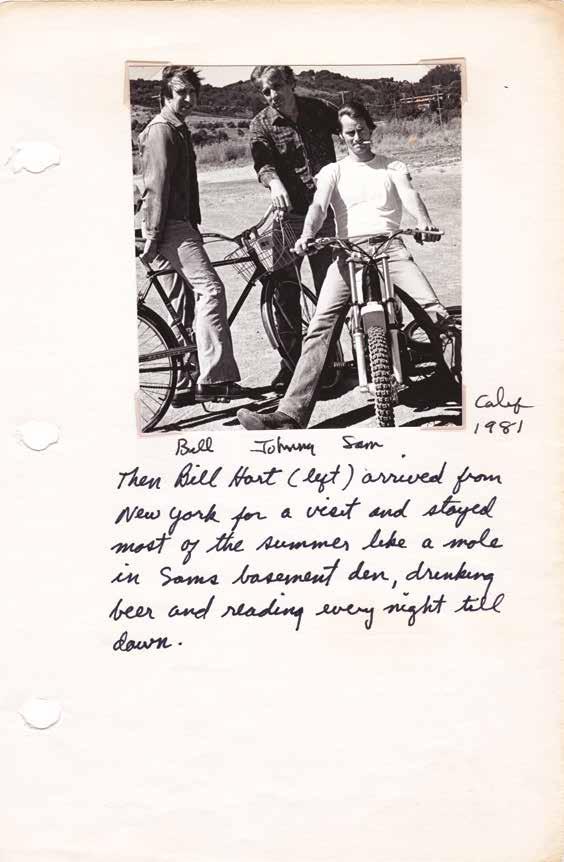 Calif
1981
Bill Johnny Sam
Then Bill Hart (left) arrived from
New York for a visit and stayed
most of the summer like a mole
in Sams basement den, drinking
beer and reading every night till
dawn.